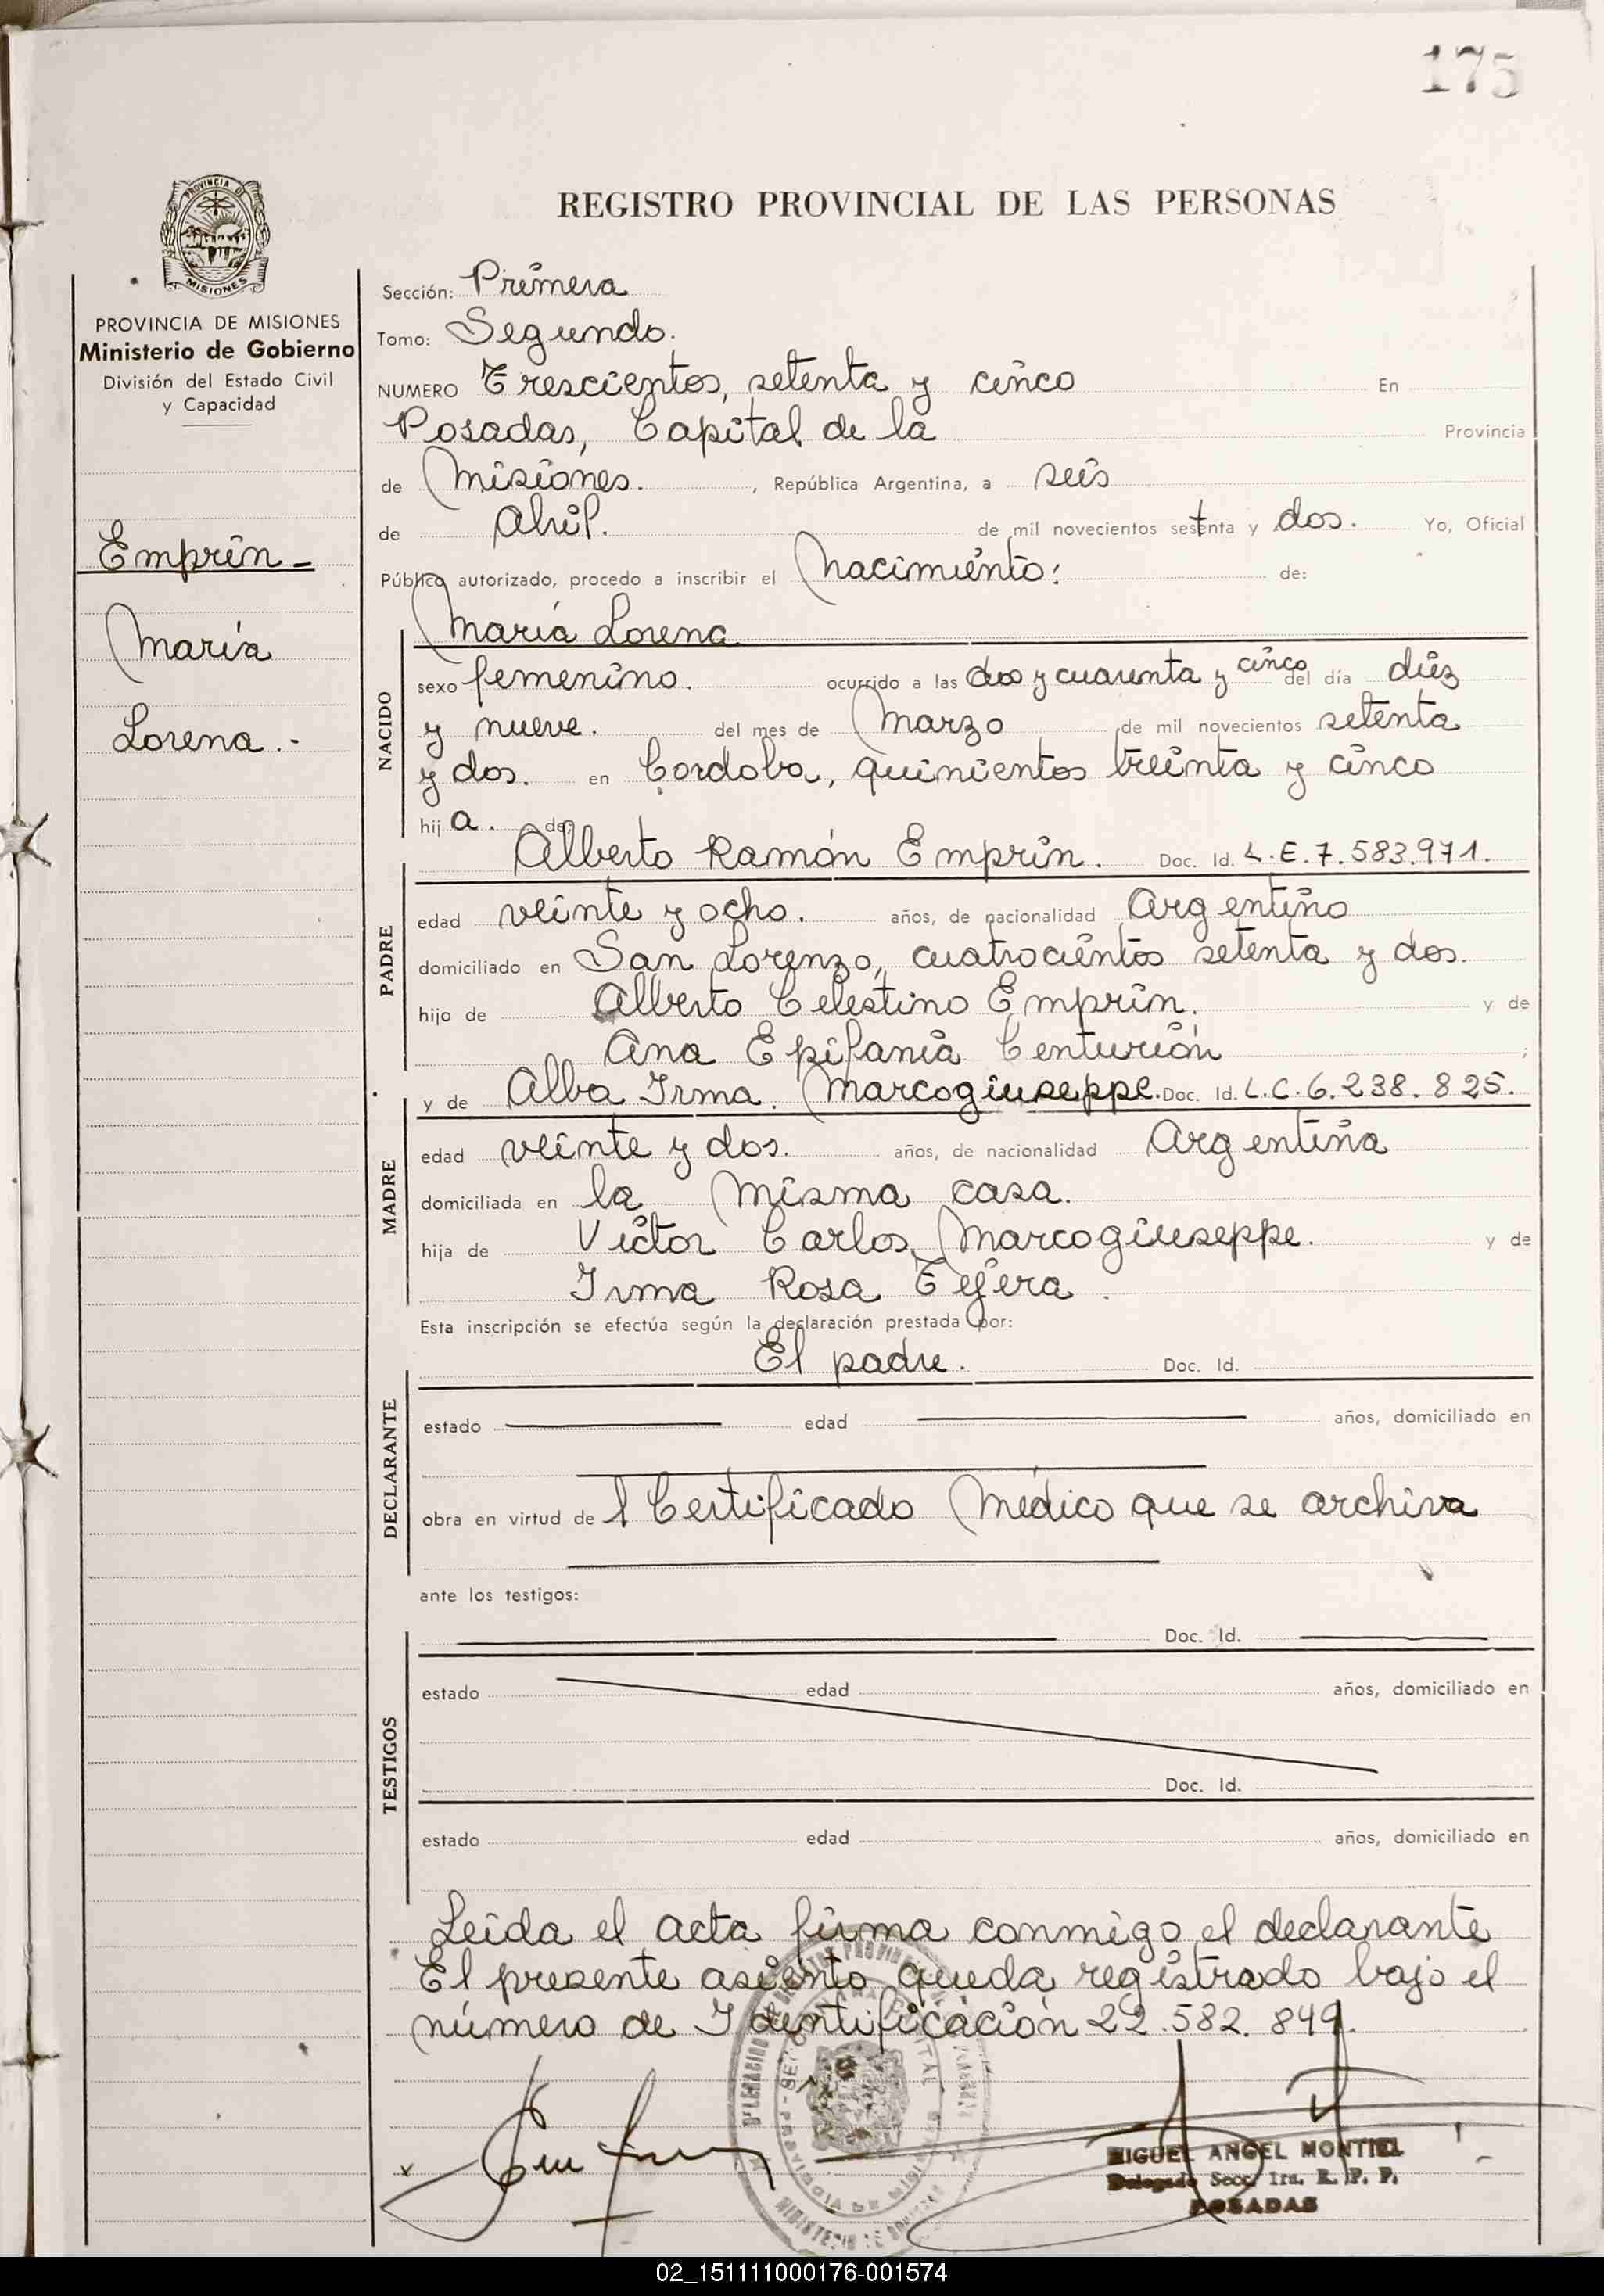 175
PROVINCIA DE
MISIONES
REGISTRO PROVINCIAL DE LAS PERSONAS
PROVINCIA DE MISIONES
Ministerio de Gobierno
División del Estado Civil
y Capacidad
Emprin -
María
Lorena . -
Sección: Primera
Tomo: Segundo.
NUMERO Trescientos, setenta y cinco En
Posadas, Capital de la Provincia
de Misiones. , República Argentina, a seis
de Abril. de mil novecientos setenta y dos. Yo, Oficial
Público autorizado, procedo a inscribir el Nacimiento: de:
María Lorena
NACIDO
sexo femenino. ocurrido a las dos y cuarenta y cinco del día diez
y nueve. del mes de Marzo de mil novecientos setenta
y dos. en Cordoba, quinientos treinta y cinco
hij a. de
Alberto Ramón Emprin. Doc. Id. L.E. 7.583.971.
PADRE
edad veinte y ocho. años, de nacionalidad Argentino
domiciliado en San Lorenzo, cuatrocientos setenta y dos.
hijo de Alberto Celestino Emprin. y de
Ana Epifania Centurión ;
y de Alba Irma. Marcogiuseppe. Doc. Id. L.C. 6.238.825.
MADRE
edad veinte y dos. años, de nacionalidad Argentina
domiciliada en la misma casa.
hija de Victor Carlos, Marcogiuseppe. y de
Irma Rosa Tejera .
Esta inscripción se efectúa según la declaración prestada por:
El padre. Doc. Id.
DECLARANTE
estado edad años, domiciliado en
obra en virtud de l Certificado Médico que se archiva
ante los testigos:
Doc. Id.
TESTIGOS
estado edad años, domiciliado en
Doc. Id.
estado edad años, domiciliado en
Leida el acta firma conmigo el declarante
El presente asiento queda registrado bajo el
número de Identificación 22.582.849.
MIGUEL ANGEL MONTIEL
Delegado Secc. 1ra. R. P. P.
POSADAS
02_151111000176-001574